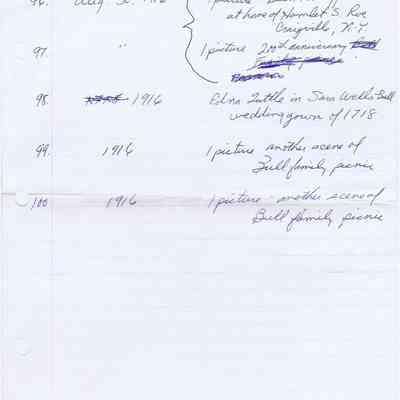 96. Aug. 30, 1916 1 picture
at home of Hamlet S. Roe
Craigville, N.Y.
97. " 1 picture 200th anniversary
98. 1916 Edna Tuttle in Sara Wells Bull
wedding gown of 1718
99. 1916 1 picture another scene of
Bull family picnic
100 1916 1 picture - another scene of
Bull family picnic